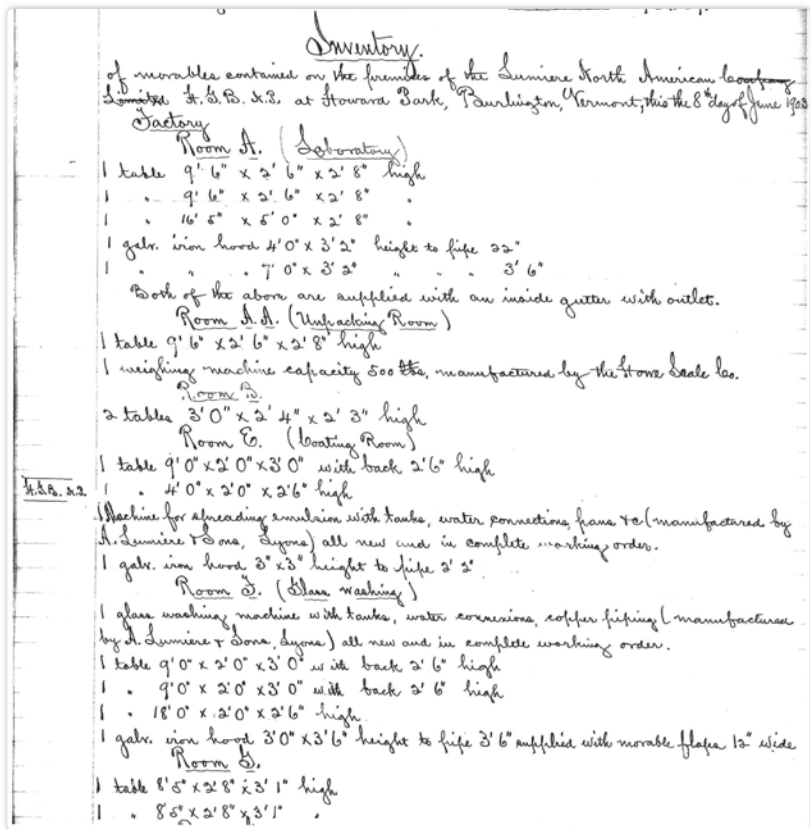 Inventory.
of movables contained on the premises of the Lumiere North American Company
Limited H.G.B. N.P. at Howard Park, Burlington, Vermont, this the 8th day of June 1903
Factory
Room A. (Laboratory)
1 table 9' 6" x 2' 6" x 2' 8" high
1 " 9' 6" x 2' 6" x 2' 8" "
1 " 16' 5" x 5' 0" x 2' 8" "
1 galv. iron hood 4' 0" x 3' 2" height to pipe 22"
1 " " " 7' 0" x 3' 2" " " " 3' 6"
Both of the above are supplied with an inside gutter with outlet.
Room A.A. (Unpacking Room)
1 table 9' 6" x 2' 6" x 2' 8" high
1 weighing machine capacity 500 lbs, manufactured by the Howe Scale Co.
Room B.
2 tables 3' 0" x 2' 4" x 2' 3" high
Room E. (Coating Room)
1 table 9' 0" x 2' 0" x 3' 0" with back 2' 6" high
1 " 4' 0" x 2' 0" x 2' 6" high
1 Machine for spreading emulsion with tanks, water connections, pans &c (manufactured by
A. Lumière & Sons, Lyons) all new and in complete working order.
1 galv. iron hood 3" x 3" height to pipe 2' 2"
Room F. (Glass washing)
1 glass washing machine with tanks, water connexions, copper piping (manufactured
by A. Lumière & Sons, Lyons) all new and in complete working order.
1 table 9' 0" x 2' 0" x 3' 0" with back 2' 6" high
1 " 9' 0" x 2' 0" x 3' 0" with back 2' 6" high
1 " 18' 0" x 2' 0" x 2' 6" high
1 galv. iron hood 3' 0" x 3' 6" height to pipe 3' 6" supplied with movable flaps 12" wide
Room G.
1 table 8' 5" x 2' 8" x 3' 1" high
1 " 8' 5" x 2' 8" x 3' 1" "